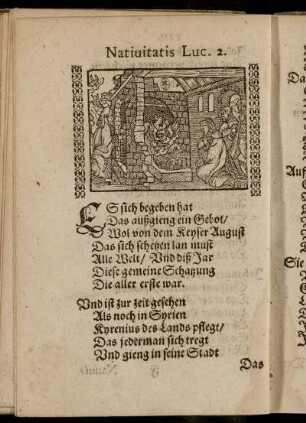 Natiuitatis Luc. 2.
ES sich begeben hat
Das außgieng ein Gebot/
Wol von dem Keyser August
Das sich schetzen lan must
Alle Welt/ Vnd diß Jar
Diese gemeine Schatzung
Die aller erste war.
Vnd ist zur zeit geschen
Als noch in Syrien
Kyrenius des Lands pflegt/
Das jederman sich tregt
Vnd gieng in seine Stadt
Das